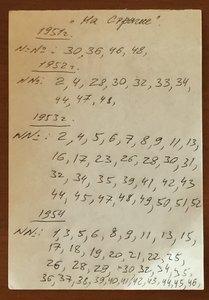 „На Страже"
1951г.
N=Nº: 30, 36, 46, 48,
1952г.
NNº: 2, 4, 28, 30, 32, 33, 34,
44, 47, 48,
1953г.
NNº: 2, 4, 5, 6, 7, 8, 9, 11, 13,
16, 17, 23, 26, 28, 30, 31,
32, 34, 35, 39, 41, 42, 43
44, 45, 47, 48, 49, 50, 51, 52
1954
NNº: 1, 3, 5, 6, 8, 9, 11, 13, 15,
17, 18, 19, 20, 21, 22, 25,
26, 28, 29, 30, 32, 34, 35,
36, 37, 38, 39, 40, 41, 42, 43, 44, 45, 46,